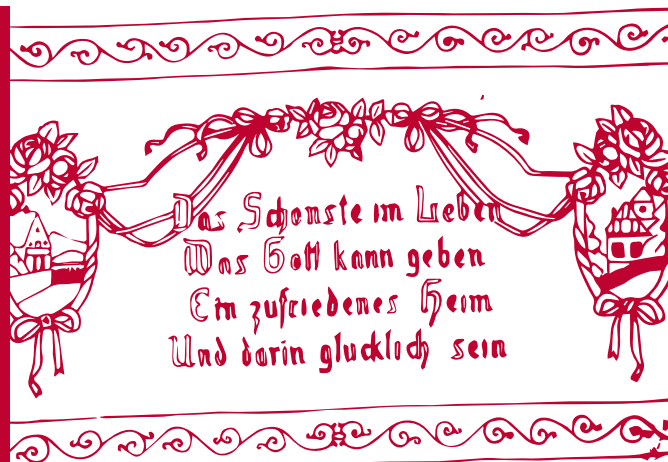 Das Schonste im Lieben
Was Gott kann geben
Ein zufriedenes Heim
Und darin glucklich sein